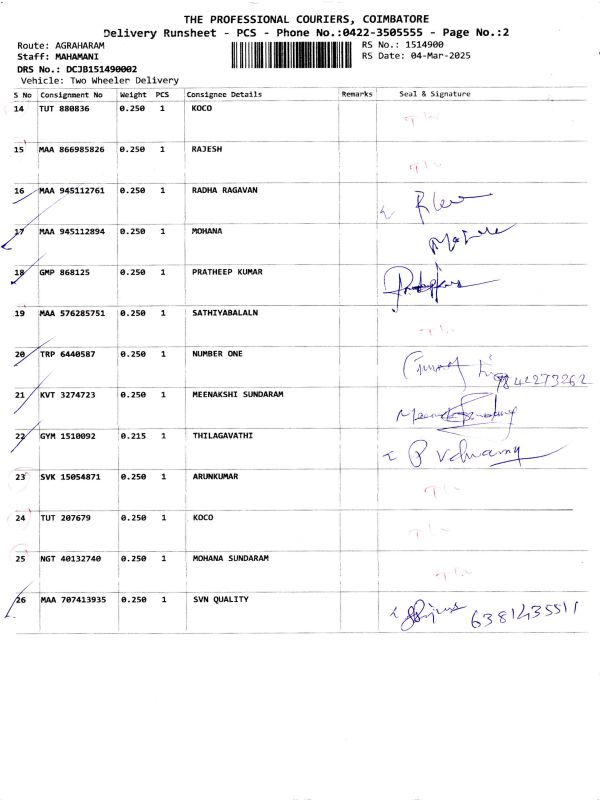 THE PROFESSIONAL COURIERS, COIMBATORE
Delivery Runsheet - PCS - Phone No.:0422-3505555 - Page No.:2
Route: AGRAHARAM RS No.: 1514900
Staff: MAHAMANI RS Date: 04-Mar-2025
DRS No.: DCJB151490002
Vehicle: Two Wheeler Delivery
S No Consignment No Weight PCS Consignee Details Remarks Seal & Signature
14 TUT 880836 0.250 1 KOCO
15 MAA 866985826 0.250 1 RAJESH
16 MAA 945112761 0.250 1 RADHA RAGAVAN
17 MAA 945112894 0.250 1 MOHANA
18 GMP 868125 0.250 1 PRATHEEP KUMAR
19 MAA 576285751 0.250 1 SATHIYABALALN
20 TRP 6440587 0.250 1 NUMBER ONE
9842273262
21 KVT 3274723 0.250 1 MEENAKSHI SUNDARAM
22 GYM 1510092 0.215 1 THILAGAVATHI
23 SVK 15054871 0.250 1 ARUNKUMAR
24 TUT 207679 0.250 1 KOCO
25 NGT 40132740 0.250 1 MOHANA SUNDARAM
26 MAA 707413935 0.250 1 SVN QUALITY 6381435511